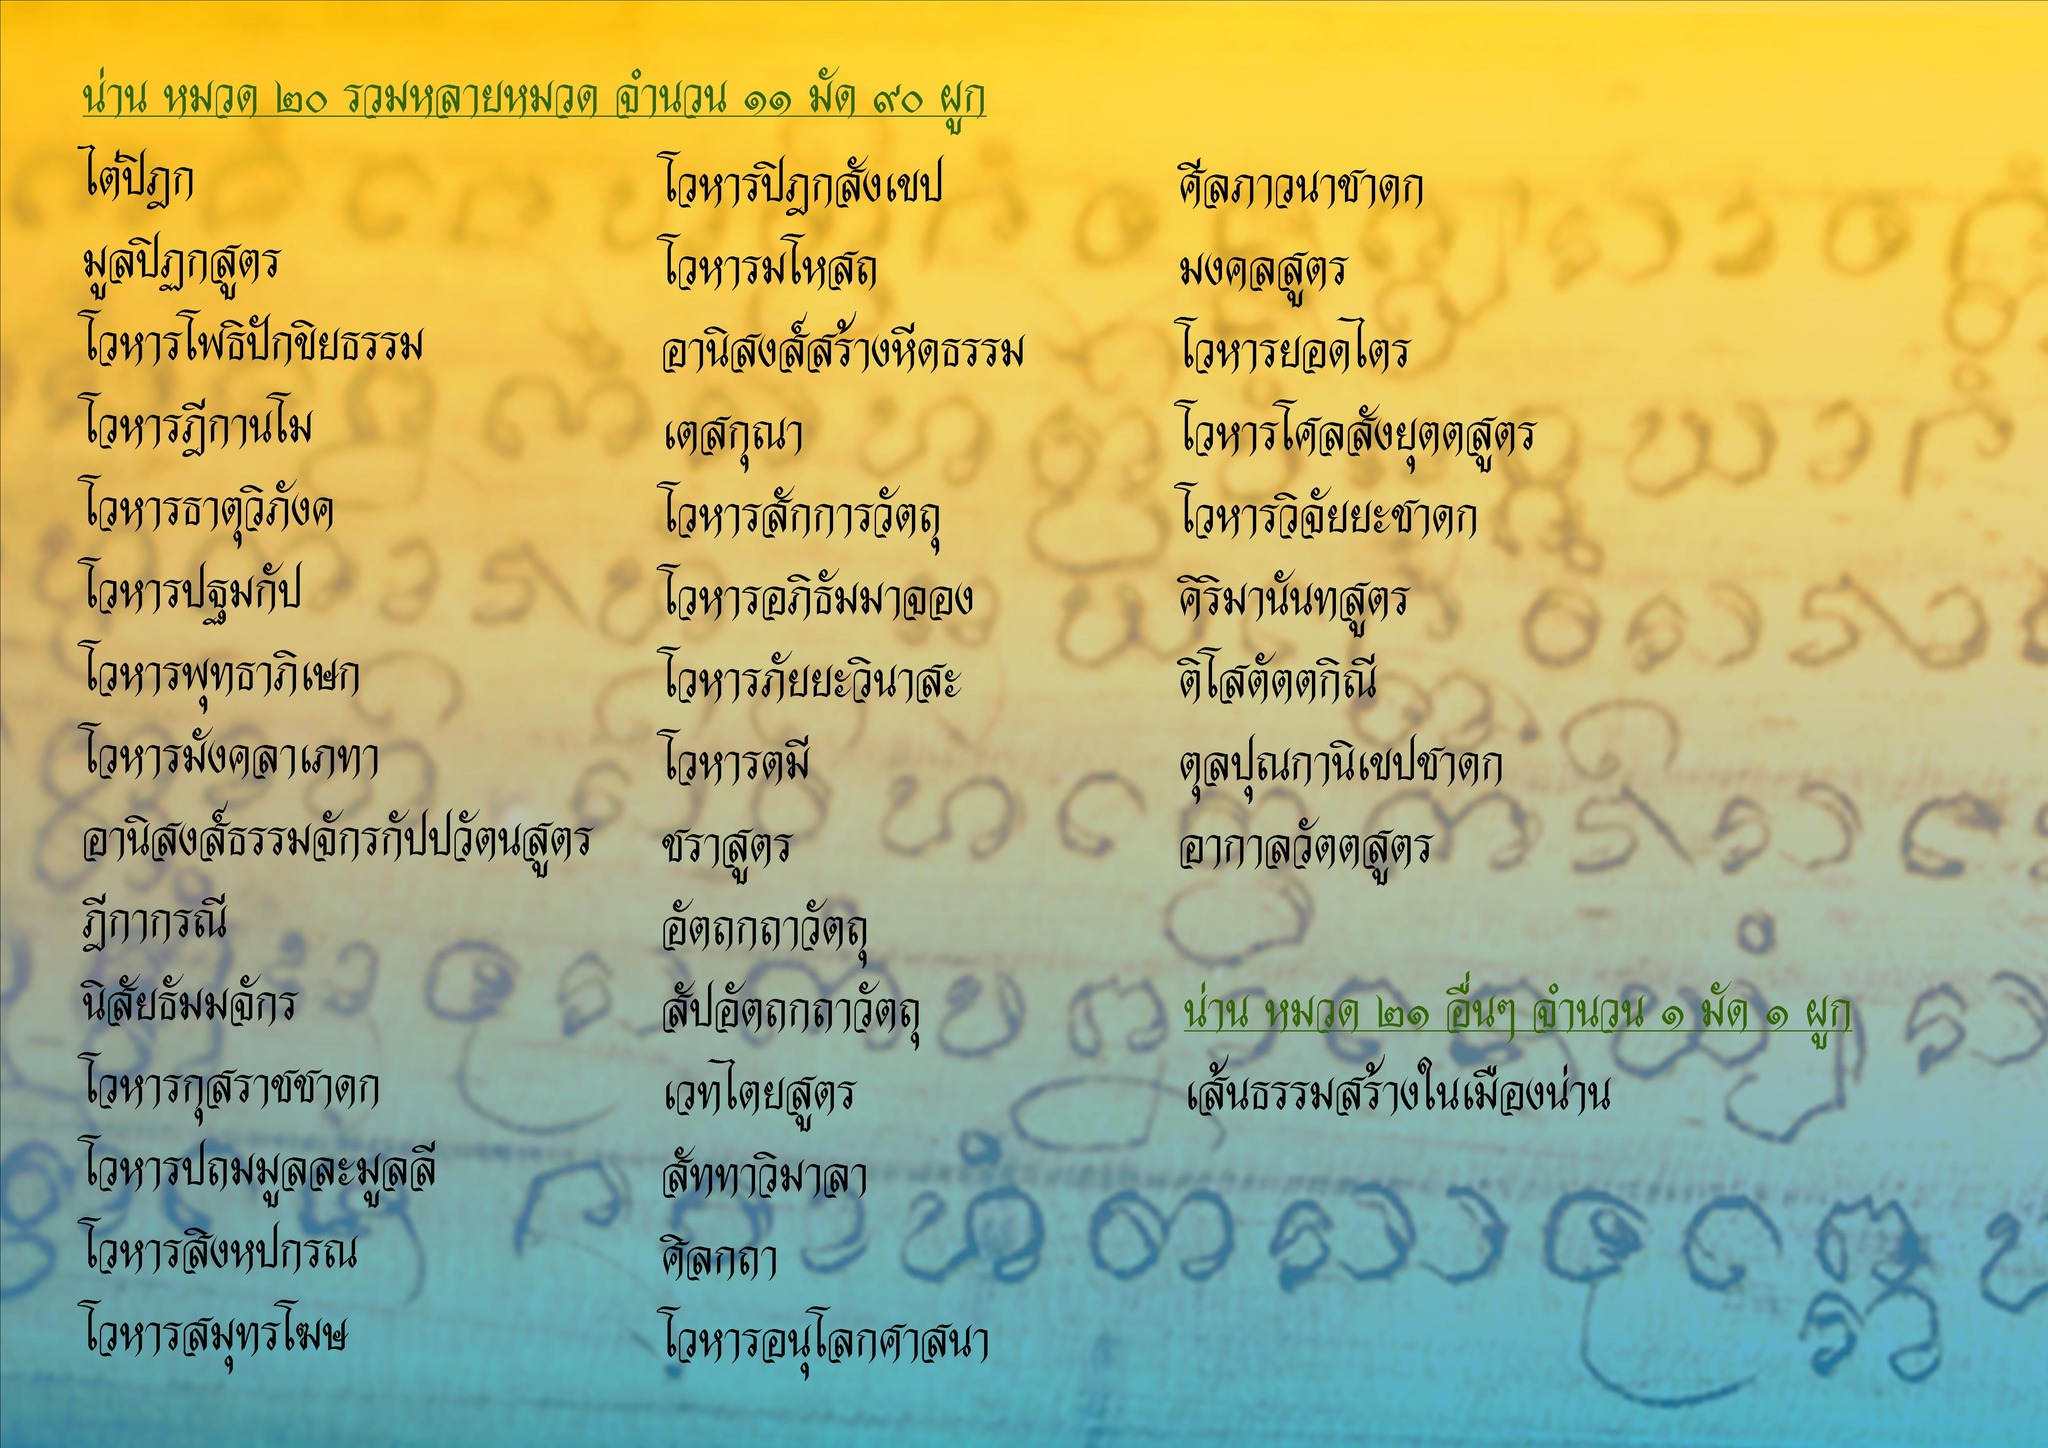 น่าน หมวด ๒๐ รวมหลายหมวด จำนวน ๑๑ มัด ๙๐ ผูก
ไต่ปิฎก
มูลปิฏกสูตร
โวหารโพธิปักขิยธรรม
โวหารฎีกานโม
โวหารธาตุวิภังค
โวหารปฐมกัป
โวหารพุทธาภิเษก
โวหารมังคลาเภทา
อานิสงส์ธรรมจักรกัปปวัตนสูตร
ฎีกากรณี
นิสัยธัมมจักร
โวหารกุสราชชาดก
โวหารปถมมูลละมูลลี
โวหารสิงหปกรณ
โวหารสมุทรโฆษ
โวหารปิฎกสังเขป
โวหารมโหสถ
อานิสงส์สร้างหีดธรรม
เตสกุณา
โวหารสักการวัตถุ
โวหารอภิธัมมาจอง
โวหารภัยยะวินาสะ
โวหารตมี
ชราสูตร
อัตถกถาวัตถุ
สัปอัตถกถาวัตถุ
เวทไตยสูตร
สัททาวิมาลา
ศิลกถา
โวหารอนุโลกศาสนา
ศีลภาวนาชาดก
มงคลสูตร
โวหารยอดไตร
โวหารโศลสังยุตตสูตร
โวหารวิจัยยะชาดก
คิริมานันทสูตร
ติโสตัตตกิณี
ตุลปุณกานิเขปชาดก
อากาลวัตตสูตร
น่าน หมวด ๒๑ อื่นๆ จำนวน ๑ มัด ๑ ผูก
เส้นธรรมสร้างในเมืองน่าน